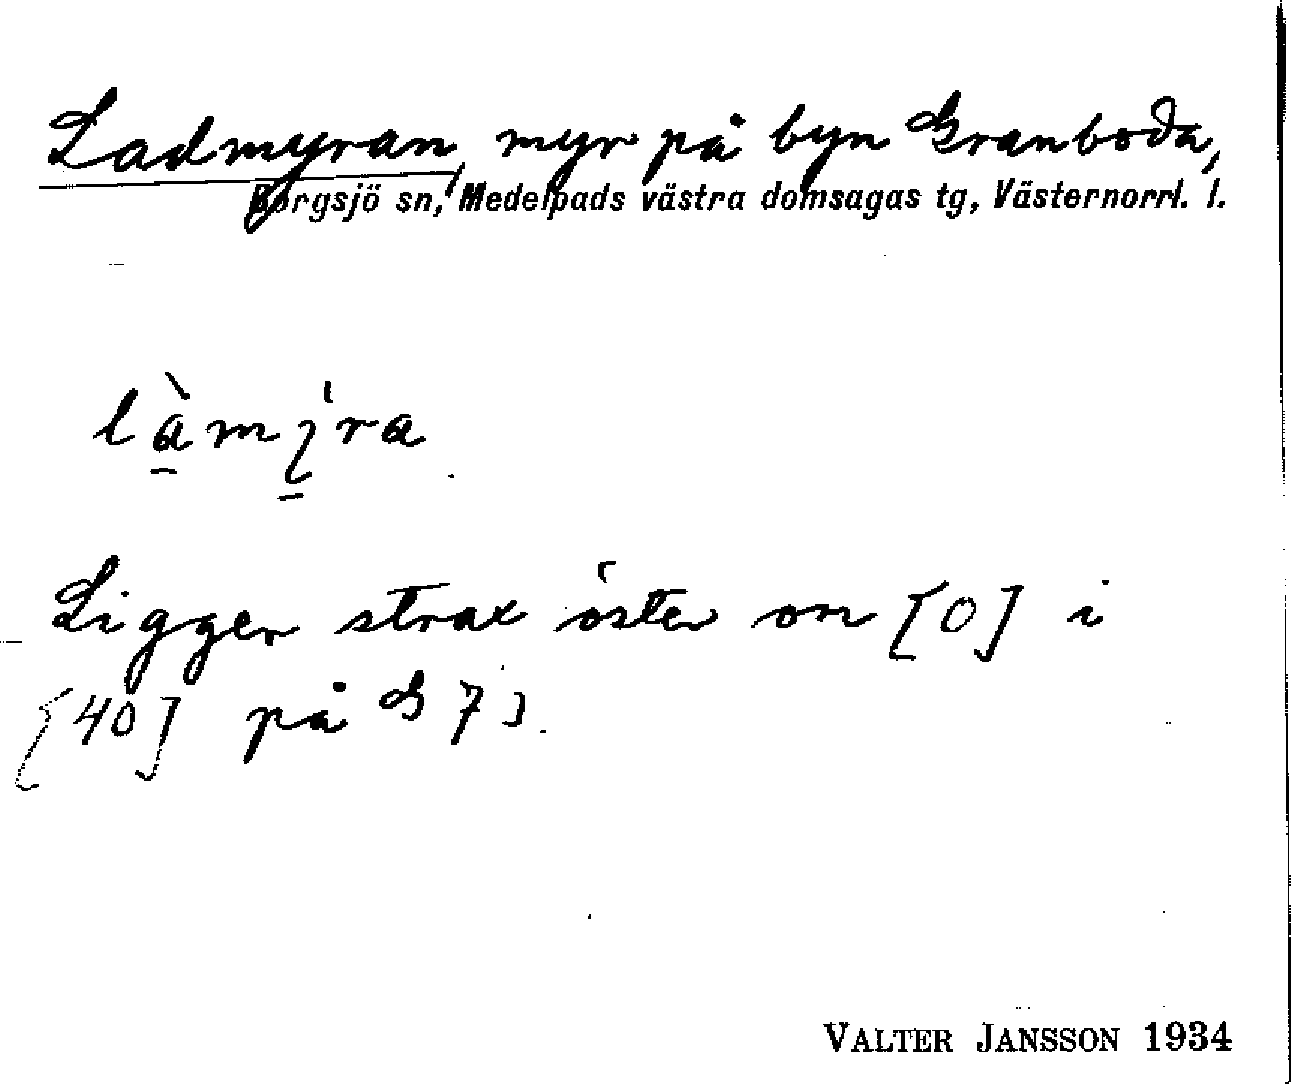 Ladmyran, myr på byn Granboda,
Borgsjö sn, Medelpads västra domsagas tg, Västernorrl. l.
làmy̨ra
Ligger strax öster om [0] i
[40] på G 7).
VALTER JANSSON 1934